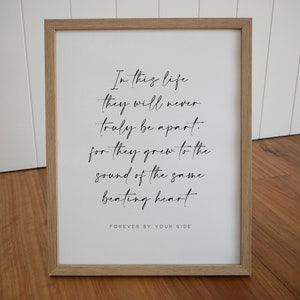 In this life
they will never
truly be apart,
for they grew to the
sound of the same
beating heart
FOREVER BY YOUR SIDE